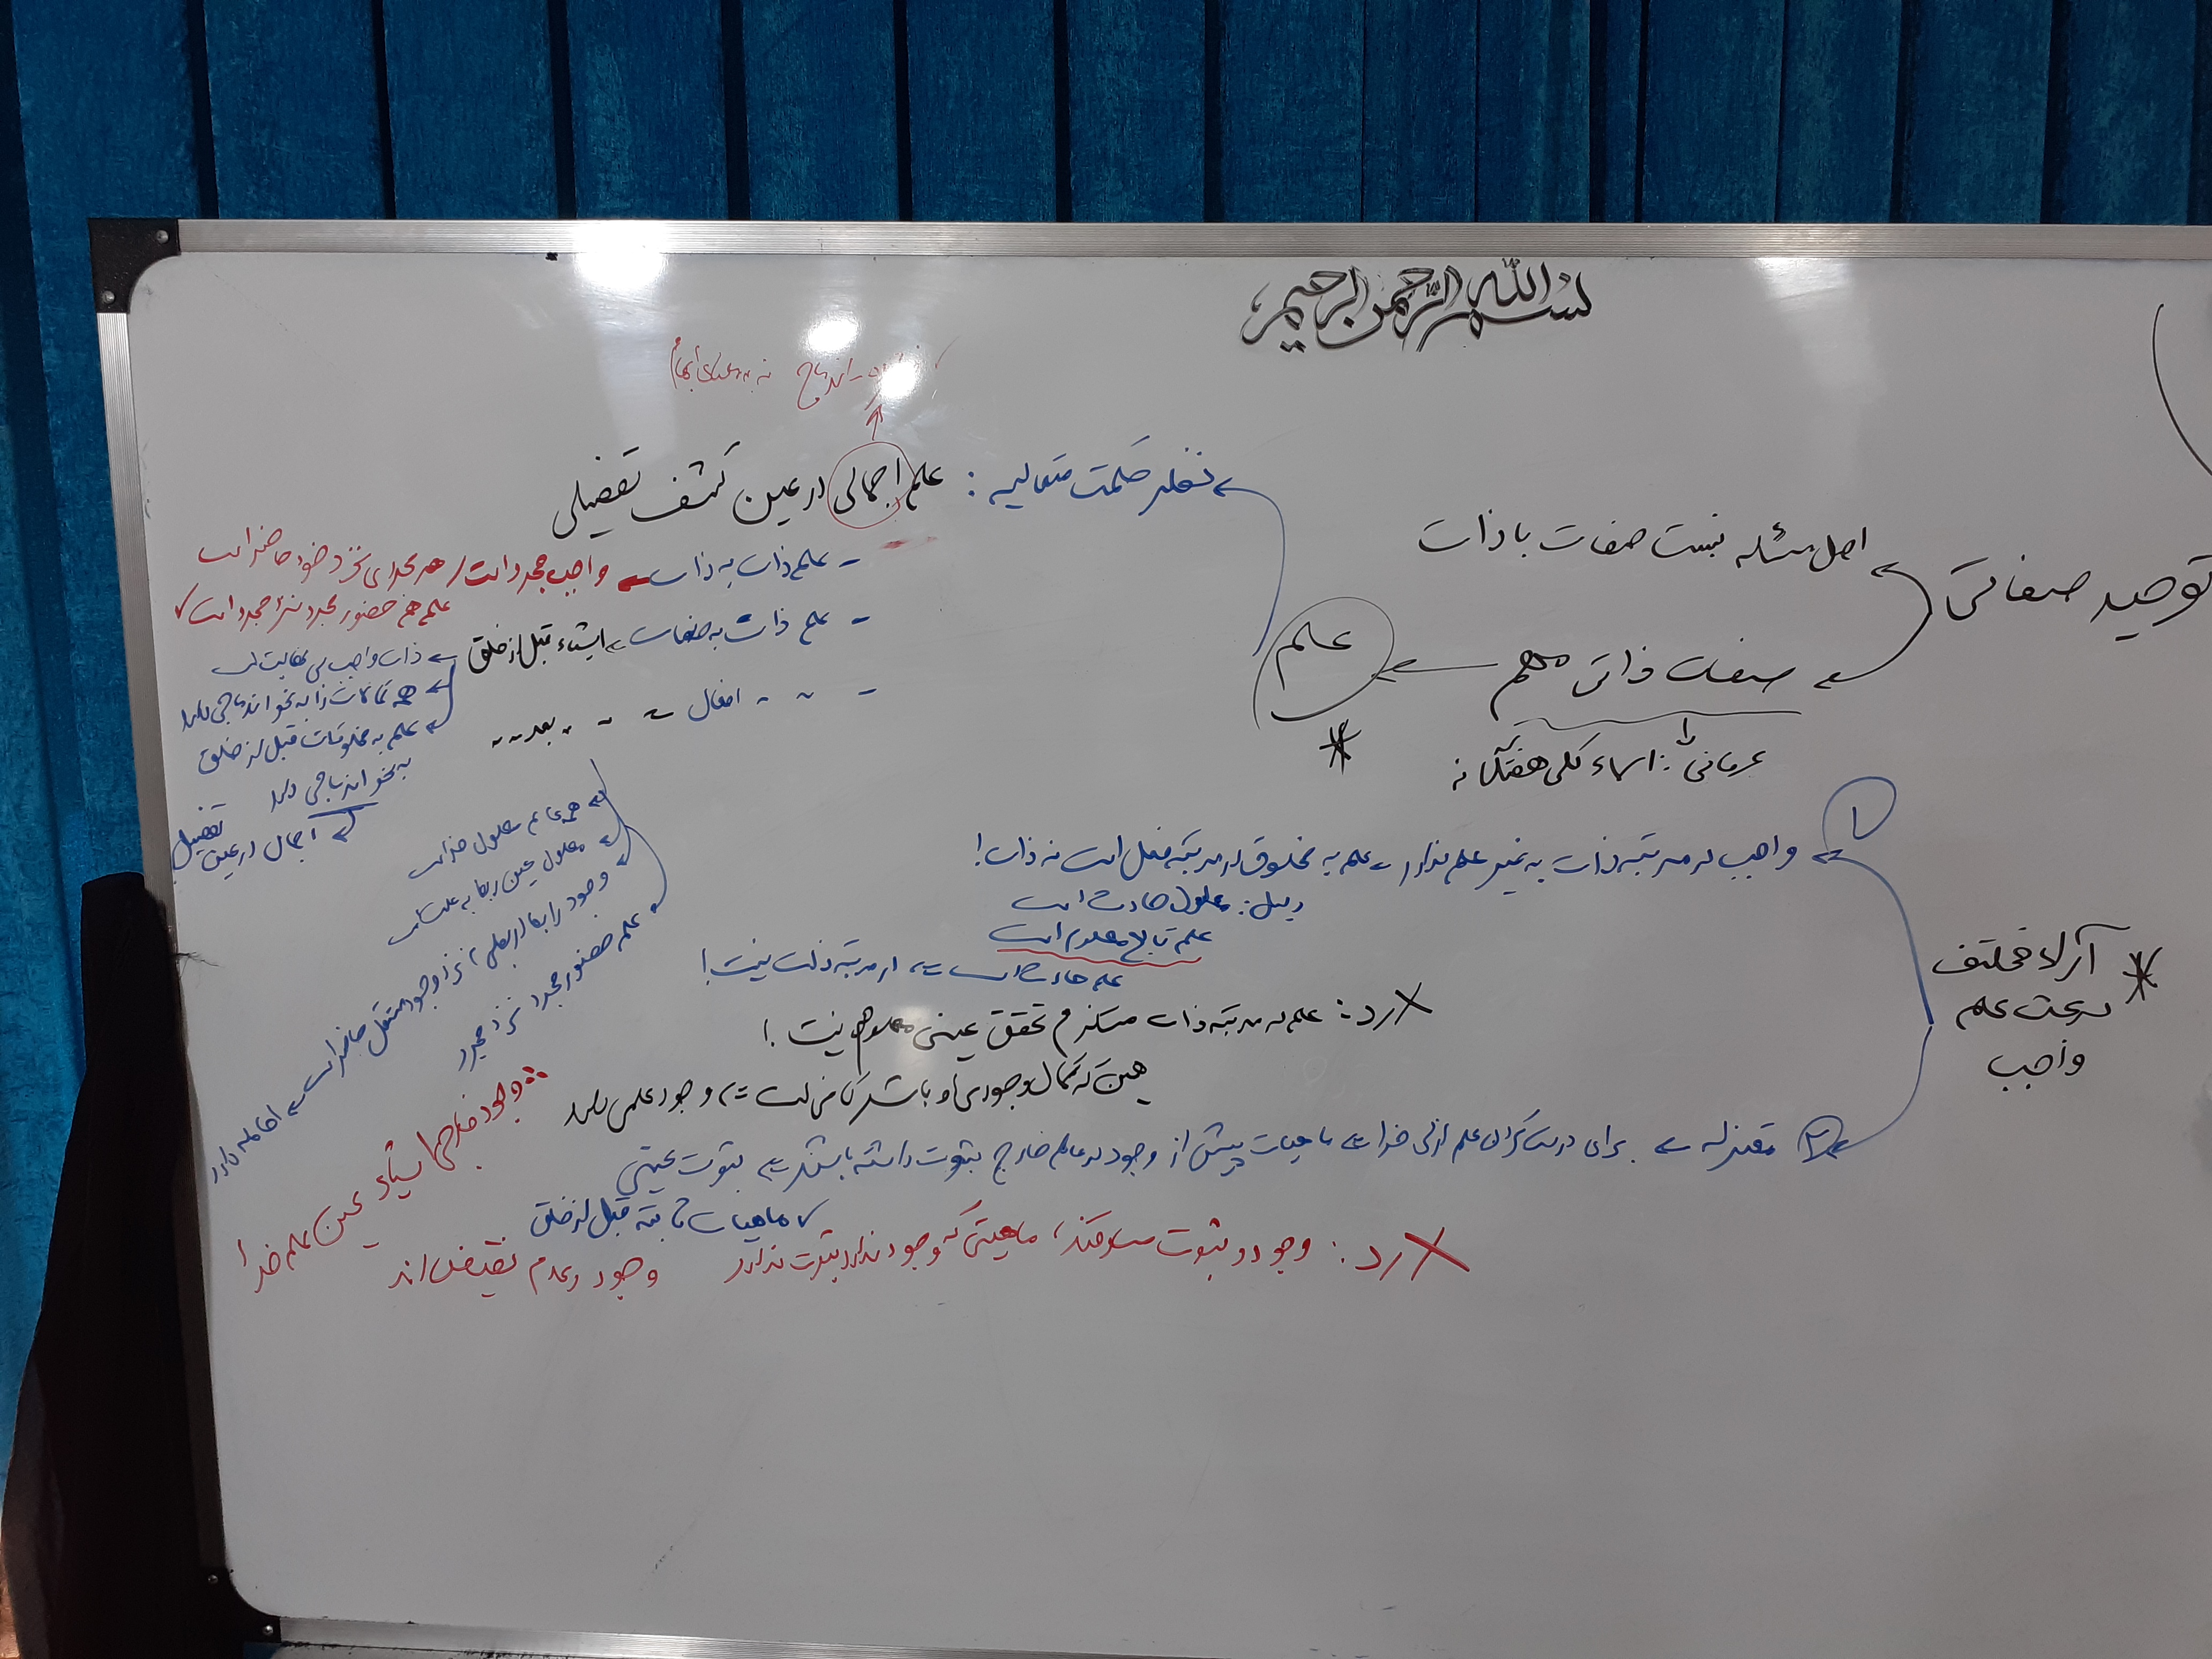 بسم الله الرحمن الرحیم
توحید صفاتی
اصل مسئله نسبت صفات با ذات
صفات ذاتی مهم
علم
عرفانی: اسماء کلی هفتگانه
نظر حکمت متعالیه: علم اجمالی در عین کشف تفصیلی
اندماج نه به معنای ابهام
- علم ذات به ذات واجب مجرد است / هر مجردی نزد خود حاضر است
علم هم حضور مجرد نزد مجرد است
- علم ذات به صفات اشیاء قبل از خلق
ذات واجب بی نهایت است
همه کمالات را به نحو اندماجی دارد
علم به مخلوقات قبل از خلق
به نحو اندماجی دارد
اجمال در عین تفصیل
- " " افعال " " بعد " "
همه عالم معلول خداست
معلول عین ربط به علت است
وجود رابط (معلول) نزد وجود مستقل حاضر است احاطه دارد
علم حضور مجرد نزد مجرد
وجود خارجی اشیاء عین علم خدا
* آراء مختلف
در بحث علم
واجب
۱ واجب در مرتبه ذات به غیر علم ندارد علم به مخلوق در مرتبه فعل است نه ذات!
دلیل: معلول حادث است
علم تابع معلوم است
علم حادث است در مرتبه ذات نیست!
رد: علم در مرتبه ذات مستلزم تحقق عینی معلوم نیست!
همین که کمال وجودی او باشد کافی است وجود علمی دارد
۲ معتزله برای درست کردن علم ازلی خدا ماهیات پیش از وجود در عالم خارج ثبوت داشته باشند ثبوت عینی
ماهیات ثابته قبل از خلق
رد: وجود و ثبوت مساوقند، ماهیتی که وجود ندارد ثبوت ندارد وجود و عدم نقیض اند